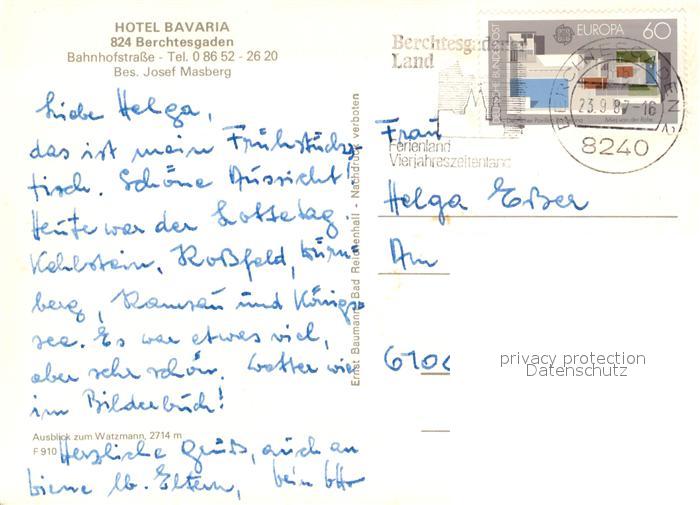 HOTEL BAVARIA
824 Berchtesgaden
Bahnhofstraße - Tel. 0 86 52 - 26 20
Bes. Josef Masberg
Liebe Helga,
das ist mein Frühstücks-
tisch. Schöne Aussicht!
Heute war der
Kehlstein, Roßfeld, Dürrn-
berg, Ramsau und Königs-
see. Es war etwas viel,
aber sehr schön. Wetter wie
im Bilderbuch!
Ausblick zum Watzmann, 2714 m
F 910
Herzliche Grüße, auch an
Deine lb. Eltern,
Ernst Baumann, Bad Reichenhall - Nachdruck verboten
Berchtesgadener
Land
Ferienland
Vierjahreszeitenland
DEUTSCHE BUNDESPOST
EUROPA 60
Mies van der Rohe
BERCHTESGADEN
23.9.87-16
8240
Frau
Helga
Am
610
privacy protection
Datenschutz